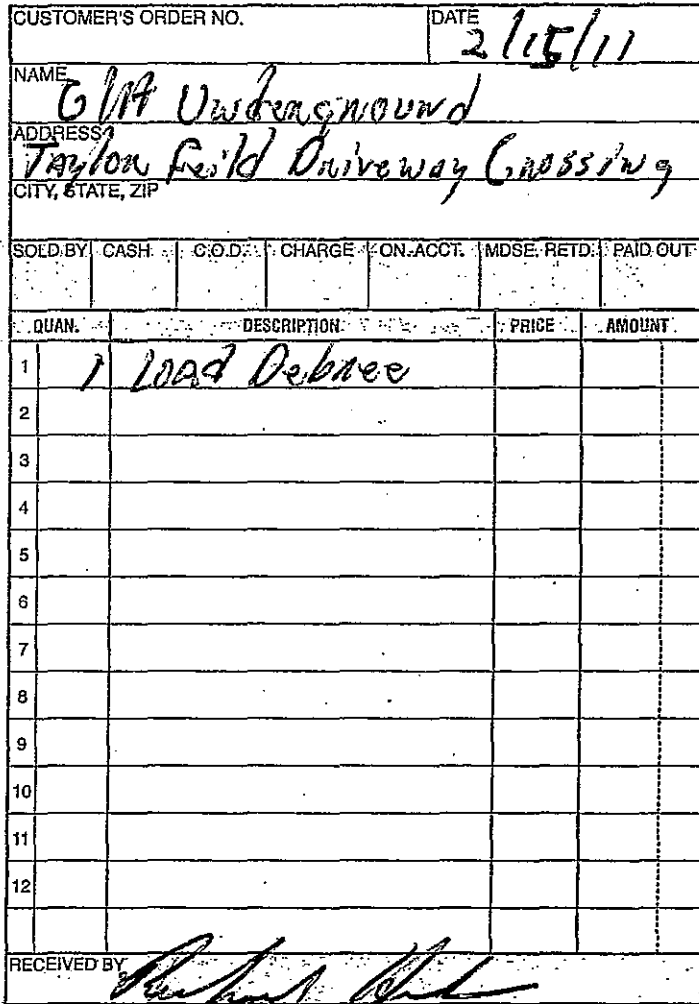 CUSTOMER'S ORDER NO. DATE 2/15/11
NAME Underground
ADDRESS Taylor Feild Driveway Crossing
CITY, STATE, ZIP
SOLD BY CASH C.O.D. CHARGE ON. ACCT. MDSE. RETD. PAID OUT
QUAN. DESCRIPTION PRICE AMOUNT
1 1 Load Debree
2
3
4
5
6
7
8
9
10
11
12
RECEIVED BY